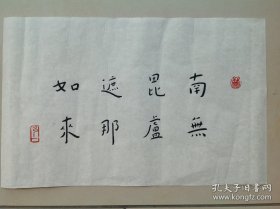 南無
毘盧
遮那
如來
孔夫子旧书网